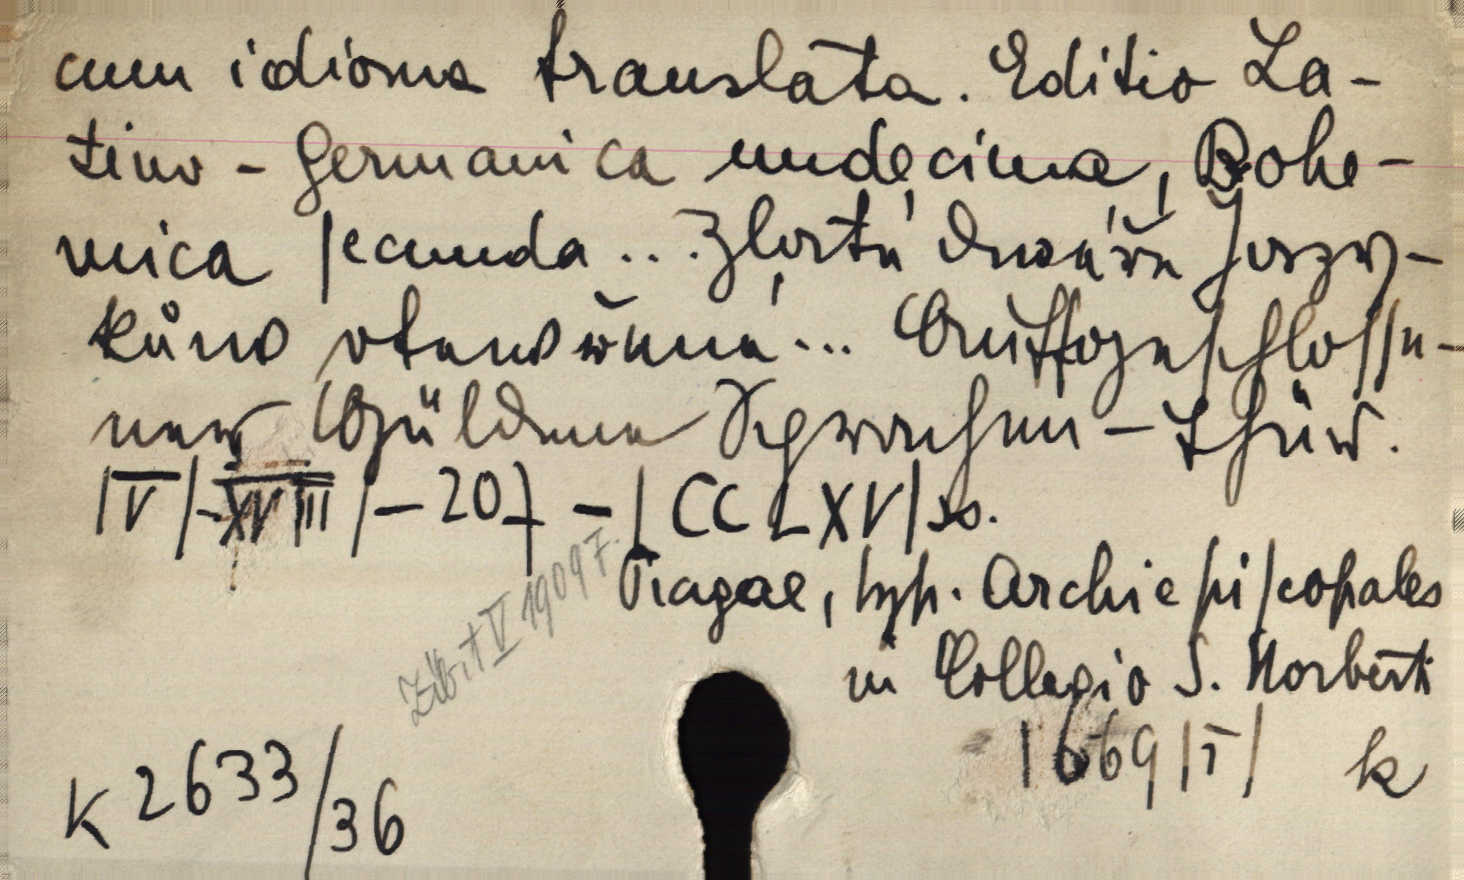 cum idioma translata. Editio La-
tino-Germanica undecima, Bohe-
mica secunda... Zlatá dwéřa Jazy-
kůw otewřená... Auffgeschlosse-
new Güldene Sprachen-Thür.
|IV|-XVIII|-207-|CCLXV| ss.
Pragae, typ. Archiepiscopales
in Collegio S. Norberti
1669 |I| k
Zíbrt V 1909 7.
K 2633/36